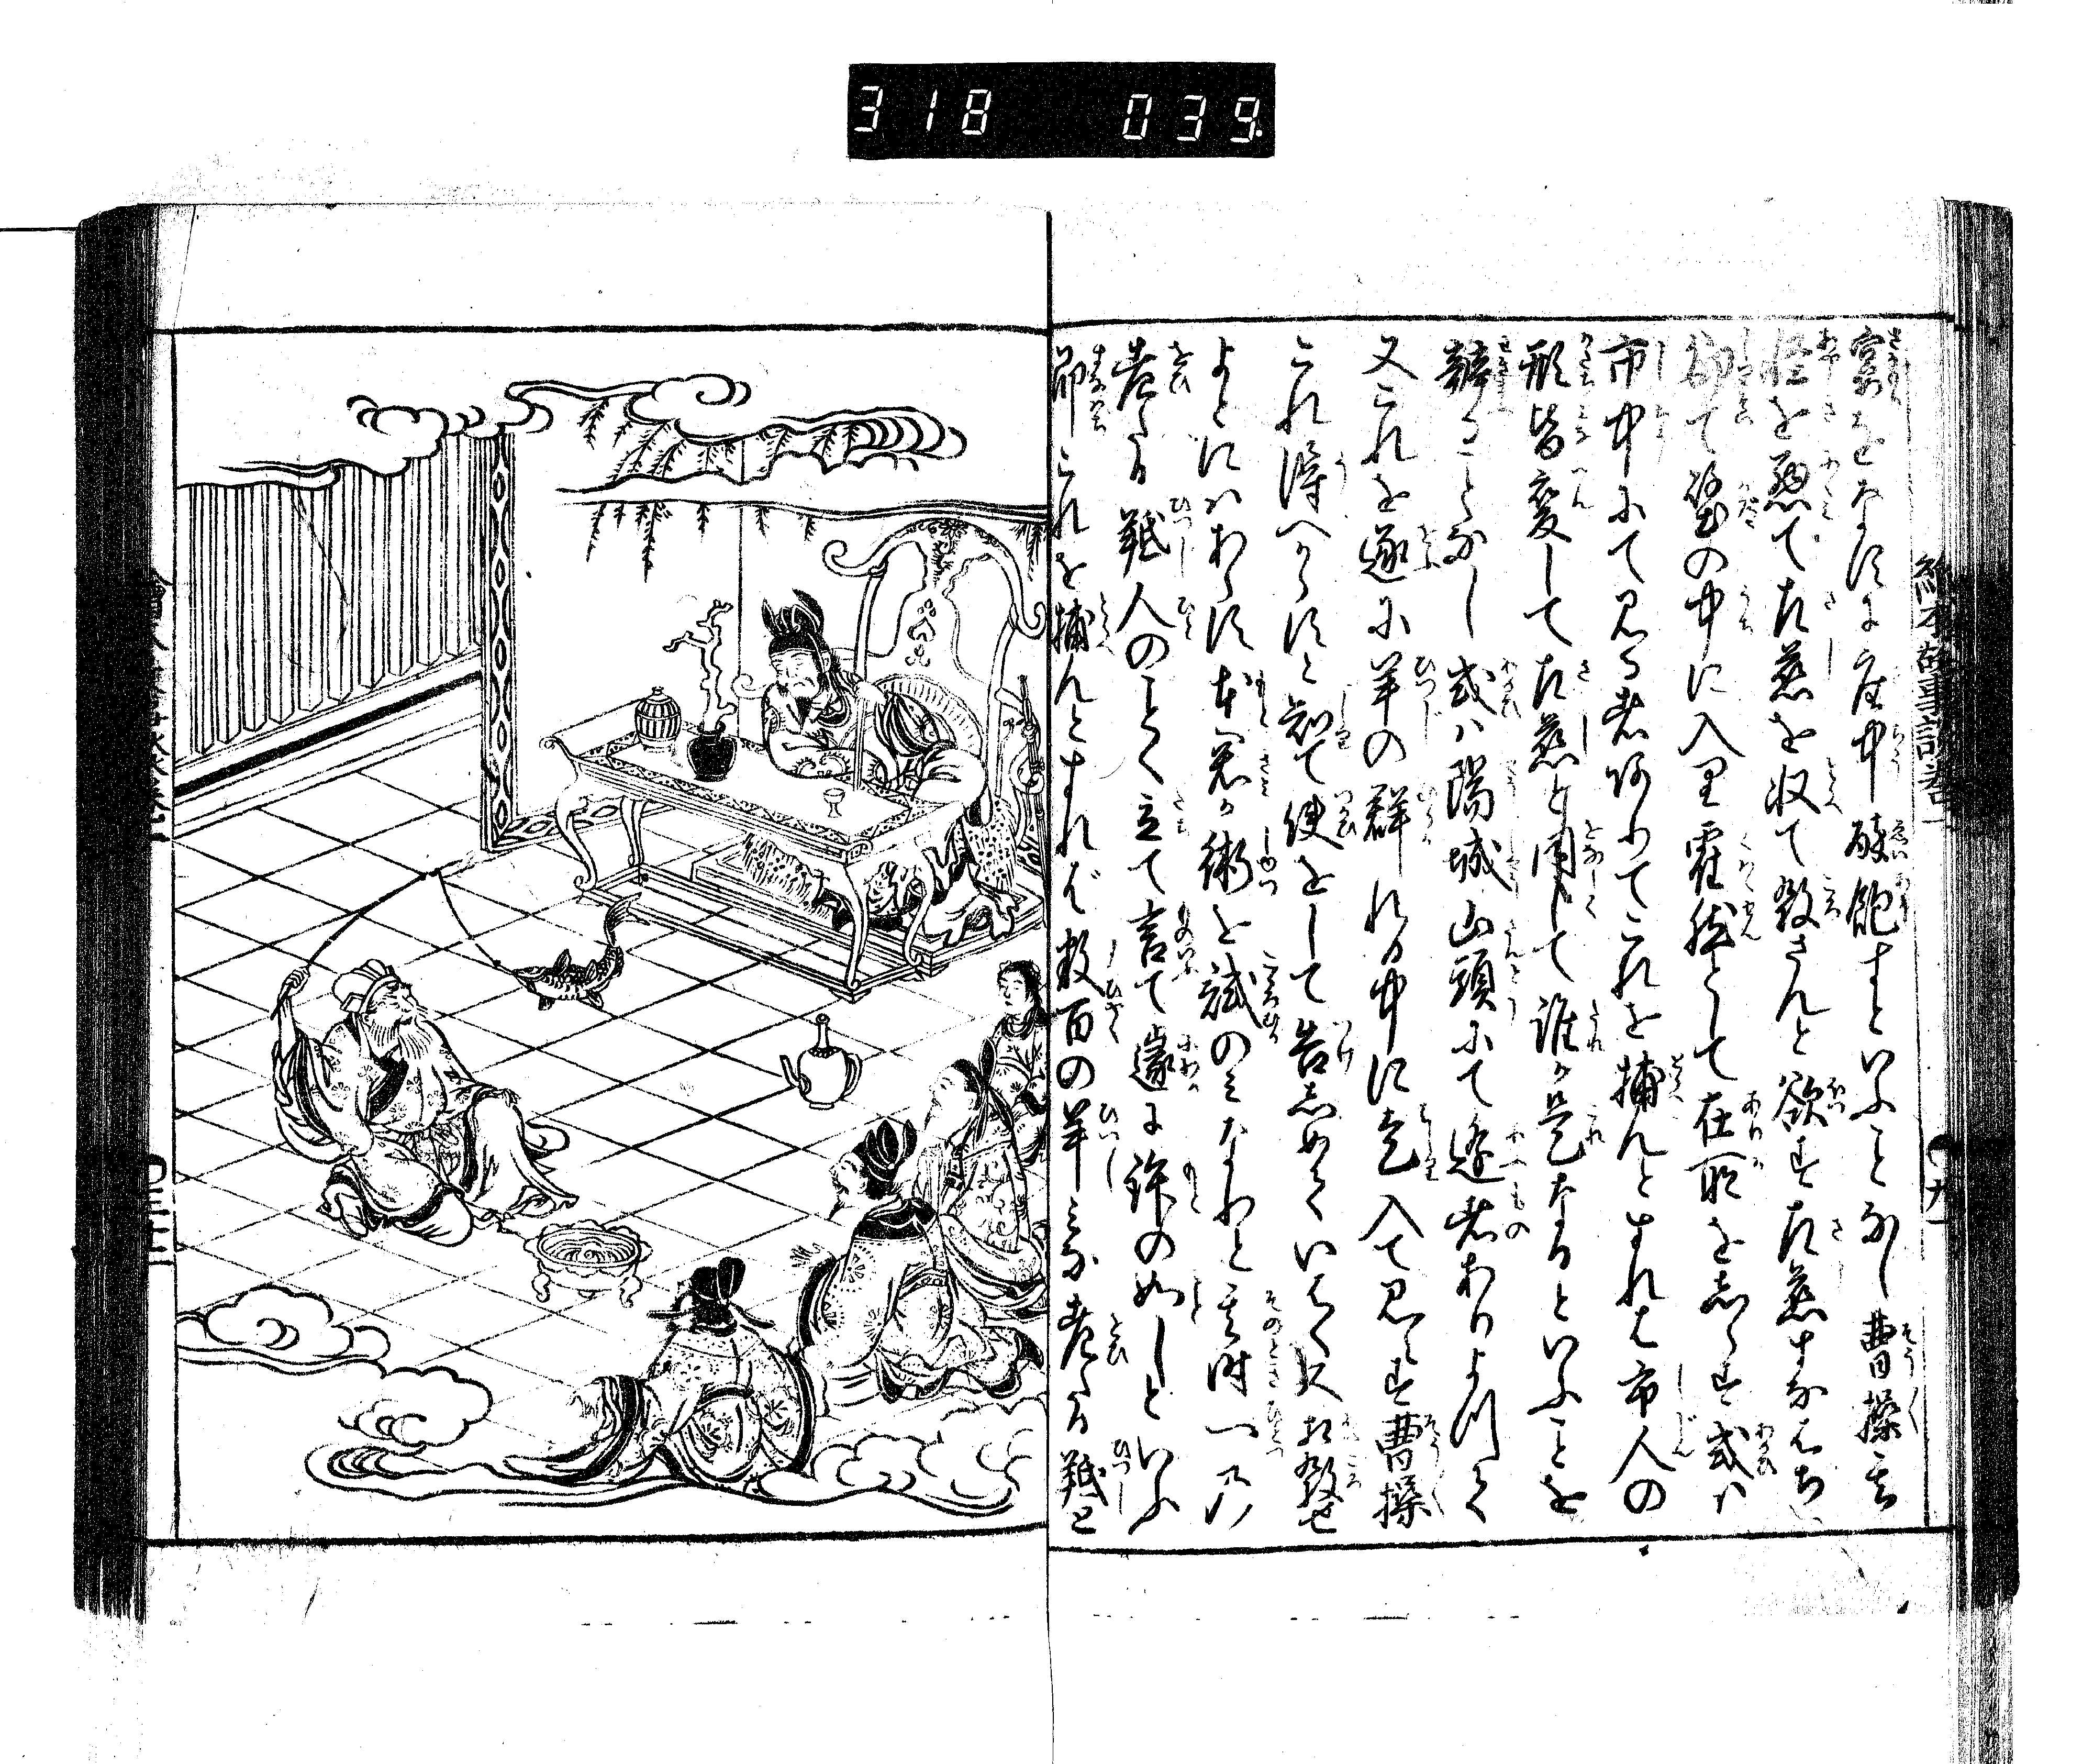 318 039.
繪本故事談卷一
宴をなすに座中酔飽すといふことなし曹操其
怪を悪て左慈を収て殺さんと欲す左慈すなはち
却て壁の中に入里霍然として在所を志らす或ハ
市中にて見る者ありてこれを捕んとすれは市人の
形皆変して左慈と同して誰か是なるといふことを
辨ることなし或ハ陽城山頭にて逢者ありよつて
又これを逐に羊の群れる中に走入て見へす曹操
これ得へからすと知て使をして告志めていはく只相殺せ
よとにハあらす本君か術を試のみなりと其時一乃
老たる羝人のことく立て言て遽に許の如しといふ
即これを捕んとすれば数百の羊みな老たる羝と